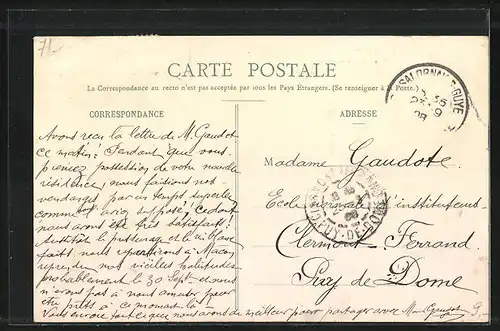 71-
CARTE POSTALE
La Correspondance au recto n'est pas acceptée par tous les Pays Étrangers. (Se renseigner à la Poste.)
CORRESPONDANCE
ADRESSE
SALORNAY-S-GUYE
Avons reçu la lettre de M. Gaudot
ce matin. Pendant que vous
preniez possession de votre nouvelle
résidence, nous faisions nos
vendanges par un temps superbe
comme avez supposé; cedont
nous avons été très satisfaits!
Aussitôt le pressurage et le
fait, nous repartirons à Mâcon
reprendre nos vieilles habitudes
probablement le 30 Sept. et nous
n'avons pas à nous
être prêts à ce moment là!
Vous envoie tout ce que nous avons de meilleur pour partager avec M. Gaudot
Madame Gaudote.
Ecole normale d'instituteurs
Clermont Ferrand
Puy de Dome
PUY-DE-DOME